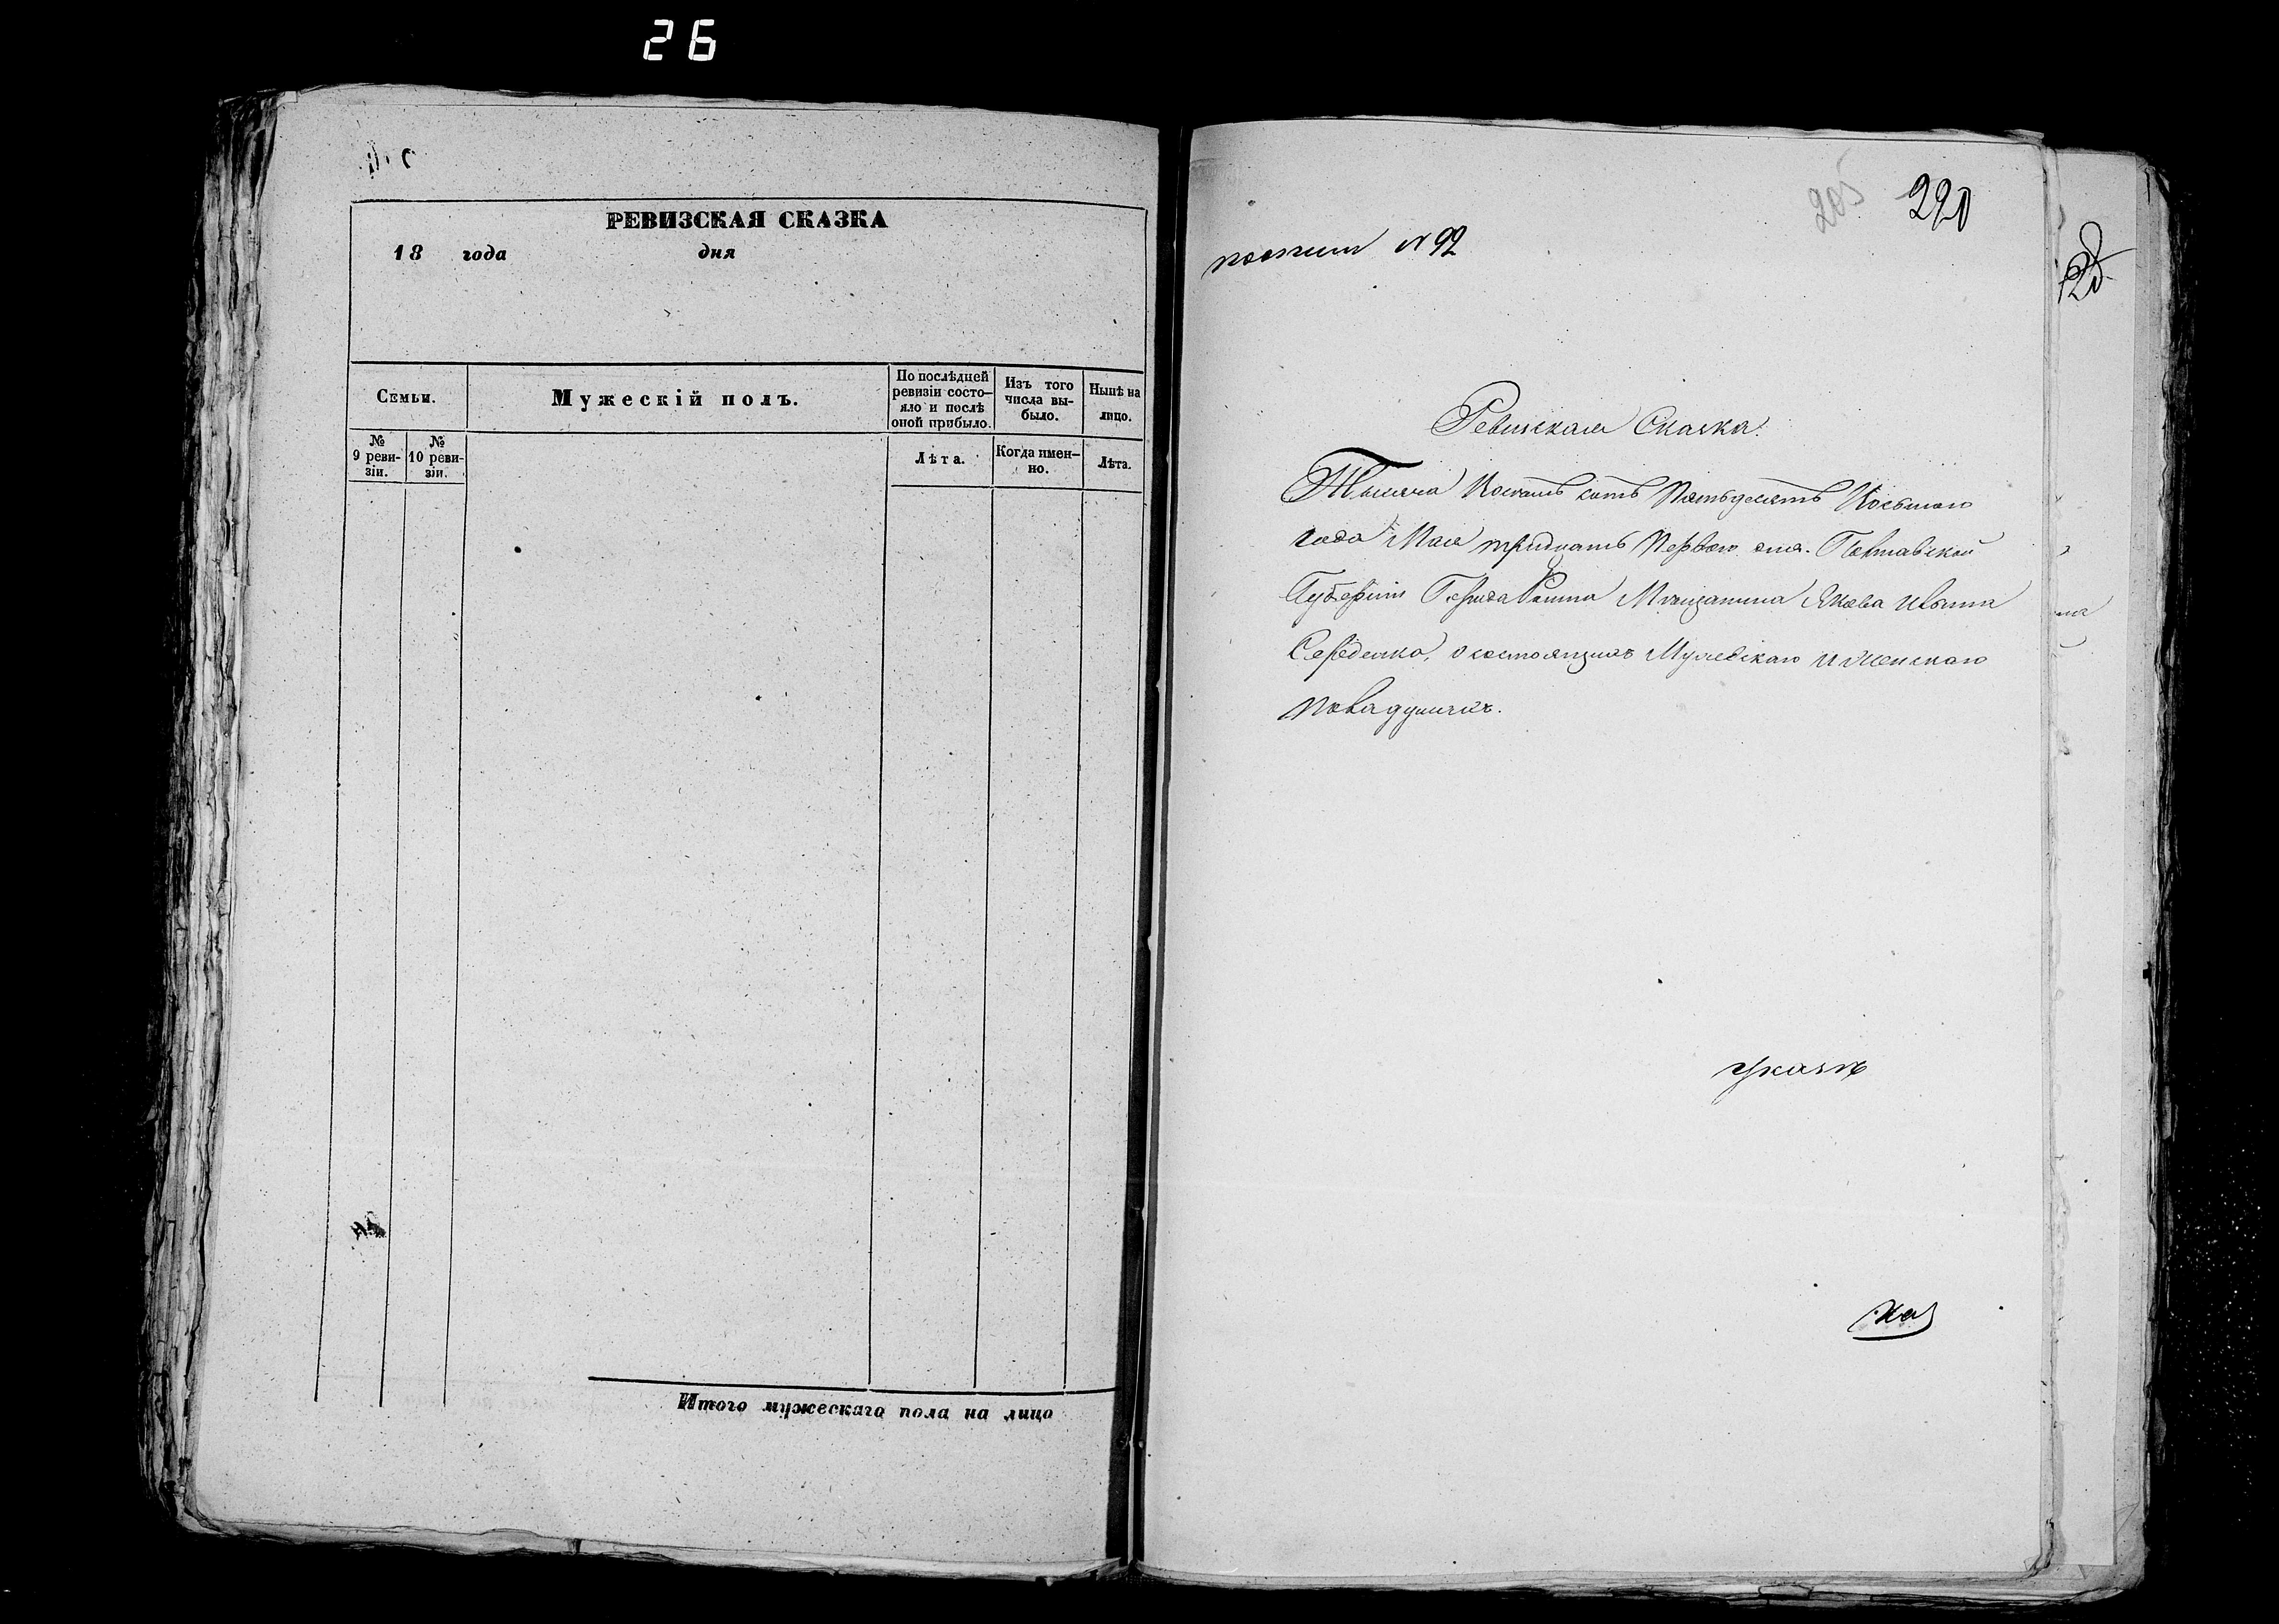 26
РЕВИЗСКАЯ СКАЗКА
18 года дня
Семьи.
Мужескій полъ.
По послѣдней ревизіи состо-
яло и послѣ оной прибыло.
Изъ того числа вы-
было.
Нынѣ на лицо.
№ 9 реви-
зіи.
№ 10 реви-
зіи.
Лѣта.
Когда имен-
но.
Лѣта.
Итого мужескаго пола на лицо
205 220
№ 92
Ревизская Сказка.
Тысяча Восемь сотъ Пятьдесятъ Восьмаго
года Мая тридцать Перваго дня. Полтавской
Губерніи Города Мѣщанина Якова Ивана
Середенко, о состоящихъ Мужескаго и женскаго
пола душахъ.